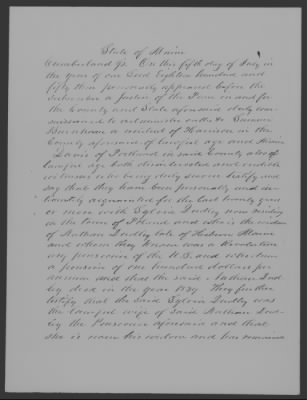 State of Maine
Cumberland SS. On this fifth day of July in
the year of our Lord Eighteen hundred and
fifty three personally appeared before the
subscriber a Justice of the Peace in and for
the County and State aforesaid duly com-
missioned to administer oaths &c Samuel
Burnham a resident of Harrison in the
County aforesaid of lawful age and
Davis of Portland in said County also of
lawful age both disinterested and credible
witnesses who being duly sworn testify and
say that they have been personally and in-
timately acquainted for the last twenty years
or more with Sylvia Dudley now residing
in the town of and who is the widow
of Nathan Dudley late of Hebron Maine
and whom they knew was a Revolution
ary pensioner of the U.S. and who drew
a pension of one hundred dollars per
annum and that the said Nathan Dud-
ley died in the year They further
testify that the said Sylvia Dudley was
the lawful wife of said Nathan Dud-
ley the Pensioner aforesaid and that
she is now his widow and has remained